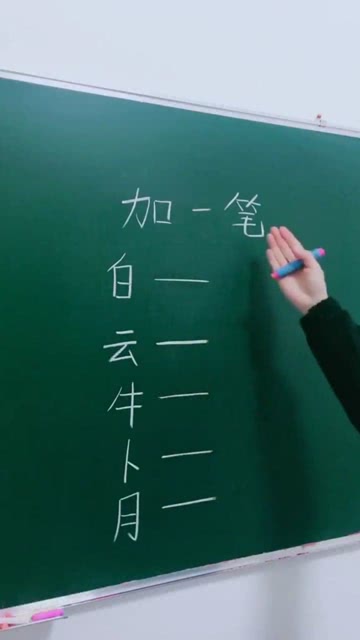 加一笔
白 —
云 —
牛 —
卜 —
月 —